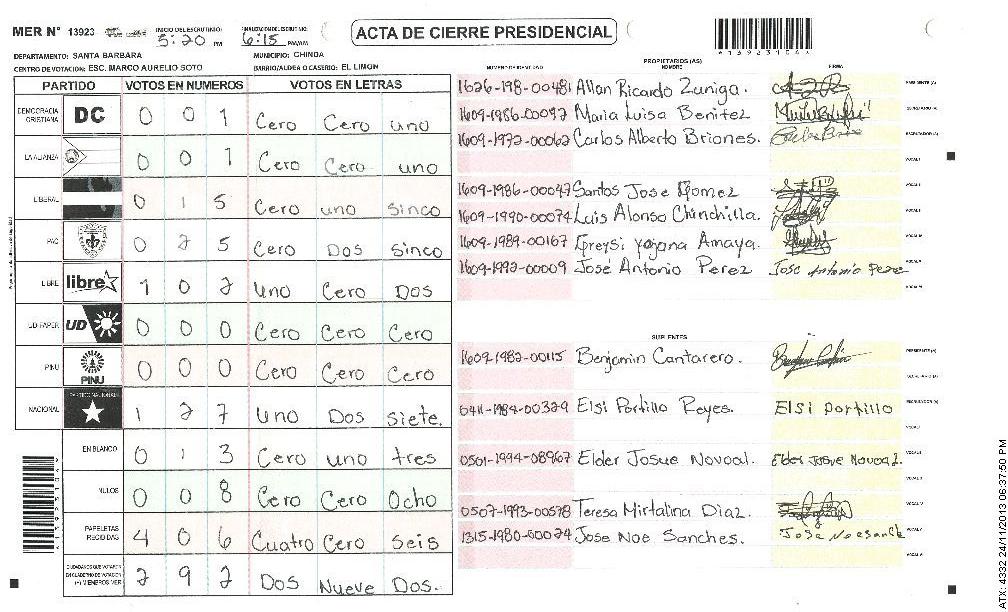 MER N° 13923 INICIO DEL ESCRUTINIO: 5:20 PM FINALIZACION DEL ESCRUTINIO: 6:15 PM/AM
ACTA DE CIERRE PRESIDENCIAL
DEPARTAMENTO: SANTA BARBARA MUNICIPIO: CHINDA
CENTRO DE VOTACION: ESC. MARCO AURELIO SOTO BARRIO/ALDEA O CASERIO: EL LIMON
PARTIDO VOTOS EN NUMEROS VOTOS EN LETRAS
DEMOCRACIA CRISTIANA DC 0 0 1 Cero Cero uno
LA ALIANZA 0 0 1 Cero Cero uno
LIBERAL 0 1 5 Cero uno Sinco
PAC 0 2 5 Cero Dos Sinco
LIBRE libre 1 0 2 Uno Cero Dos
UD-FAPER UD 0 0 0 Cero Cero Cero
PINU PINU 0 0 0 Cero Cero Cero
NACIONAL PARTIDO NACIONAL 1 2 7 Uno Dos Siete.
EN BLANCO 0 1 3 Cero uno tres
NULOS 0 0 8 Cero Cero Ocho
PAPELETAS RECIBIDAS 4 0 6 Cuatro Cero Seis
CIUDADANOS QUE VOTARON EN CUADERNO DE VOTACION (+) MIEMBROS MER 2 9 2 Dos Nueve Dos.
PROPIETARIOS (AS)
NUMERO DE IDENTIDAD NOMBRE FIRMA
1626-198-00481 Allan Ricardo Zuniga. PRESIDENTE (A)
1609-1986-00097 Maria Luisa Benitez SECRETARIO (A)
1609-1972-00062 Carlos Alberto Briones. ESCRUTADOR (A)
VOCAL I
1609-1986-00047 Santos Jose Gomez
1609-1990-00074 Luis Alonso Chinchilla.
1609-1989-00167 Greysi Yojana Amaya.
1609-1992-00009 José Antonio Perez Jose Antonio Perez
SUPLENTES
1609-1982-00115 Benjamin Cantarero. PRESIDENTE (A)
SECRETARIO (A)
0411-1984-00329 Elsi Portillo Reyes. Elsi portillo ESCRUTADOR (A)
VOCAL I
0501-1994-08967 Elder Josue Novoal. Elder Josue Novoal.
0507-1993-00578 Teresa Mirtalina Diaz.
1315-1980-00074 Jose Noe Sanches.
ATX: 4332 24/11/2013 06:37:50 PM